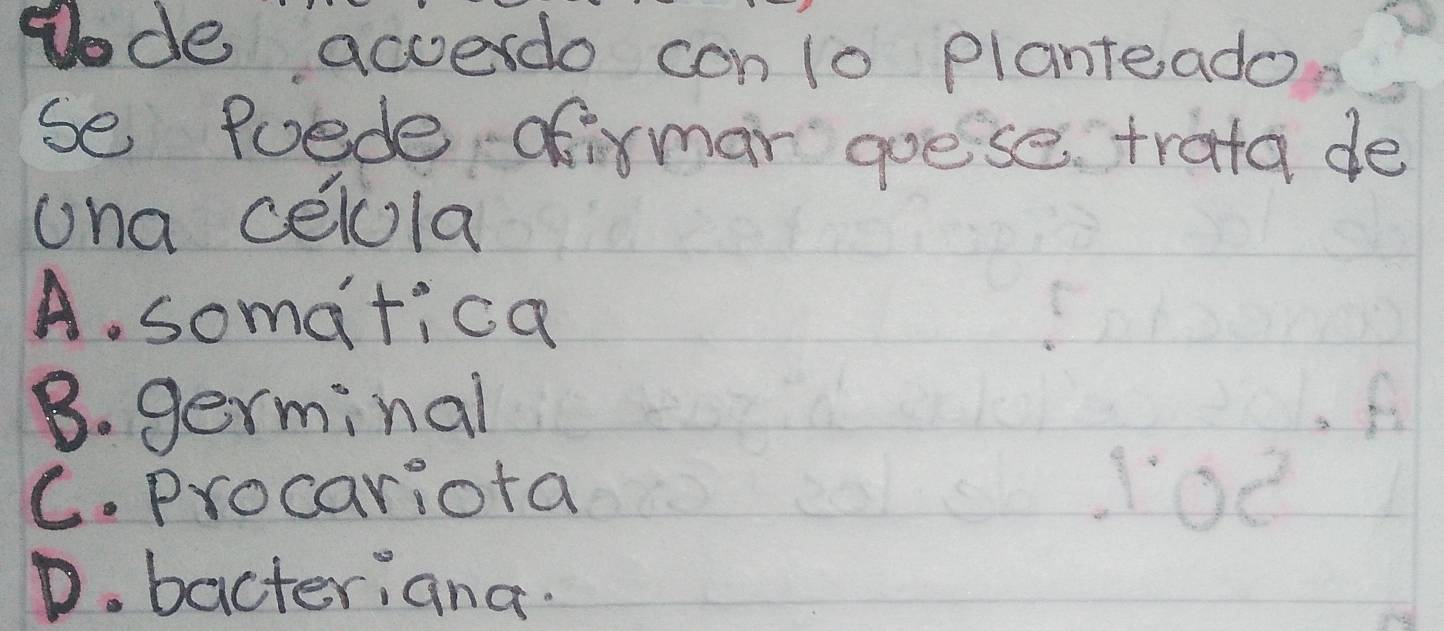 de acuerdo con lo planteado,
se puede afirmar que se trata de
una célula
A. somática
B. germinal
C. procariota
D. bacteriana.